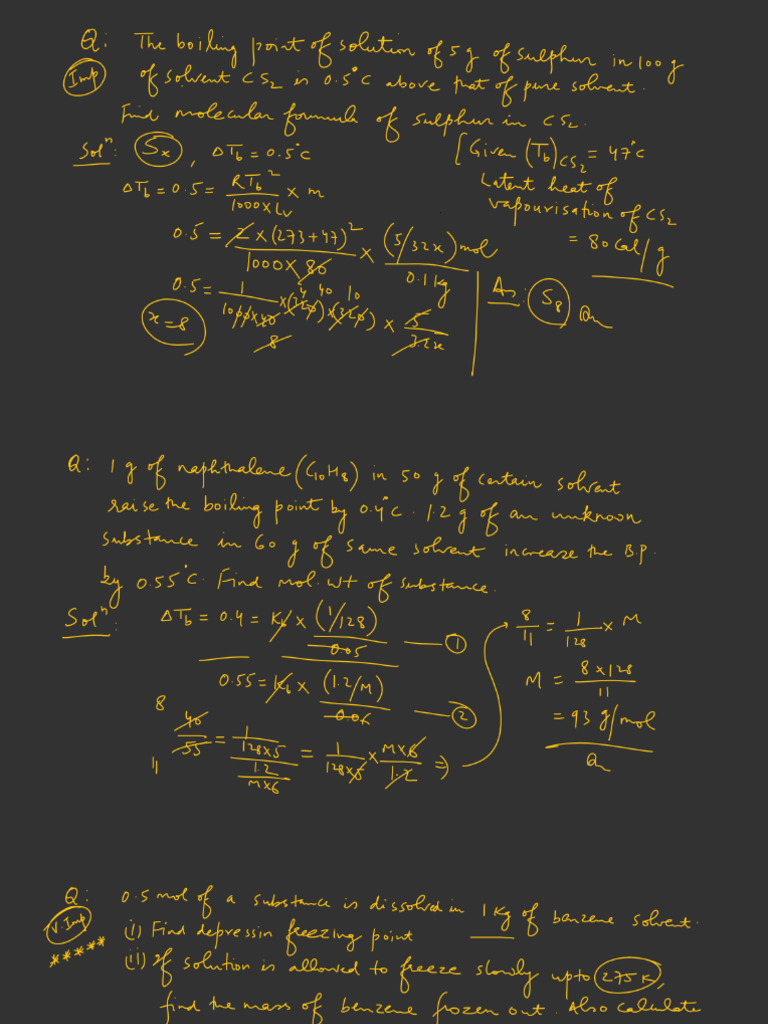 Q: The boiling point of solution of 5 g of sulphur in 100 g
Imp of solvent CS2 is 0.5°C above that of pure solvent.
Find molecular formula of sulphur in CS2.
Solⁿ: Sx, ΔTb = 0.5°C
[Given (Tb)CS2 = 47°C
Latent heat of
vapourisation of CS2
= 80 cal/g
ΔTb = 0.5 = RTb²/1000×Lv × m
0.5 = 2×(273+47)²/1000×80 × (5/32x)mol/0.1kg
0.5 = 1/1000×40 ×(320)×(320) × 5/32x
4 40 10
8
x=8
Ans: S8 An
Q: 1 g of naphthalene (C10H8) in 50 g of certain solvent
raise the boiling point by 0.4°C. 1.2 g of an unknoon
substance in 60 g of same solvent increase the B.P.
by 0.55°C. Find mol. wt of substance.
Solⁿ: ΔTb = 0.4 = Kb × (1/128)/0.05 — ①
0.55 = Kb × (1.2/M)/0.06 — ②
8
40/55 = 1/128×5 / 1.2/M×6 = 1/128×5 × M×6/1.2 ⇒
11
8/11 = 1/128 × M
M = 8×128/11
= 93 g/mol
An
Q: 0.5 mol of a substance is dissolved in 1 Kg of benzene solvent.
V.Imp (i) Find depressin freezing point
***** (ii) If solution is allowed to freeze slowly upto 275 K,
find the mass of benzene frozen out. Also calculate